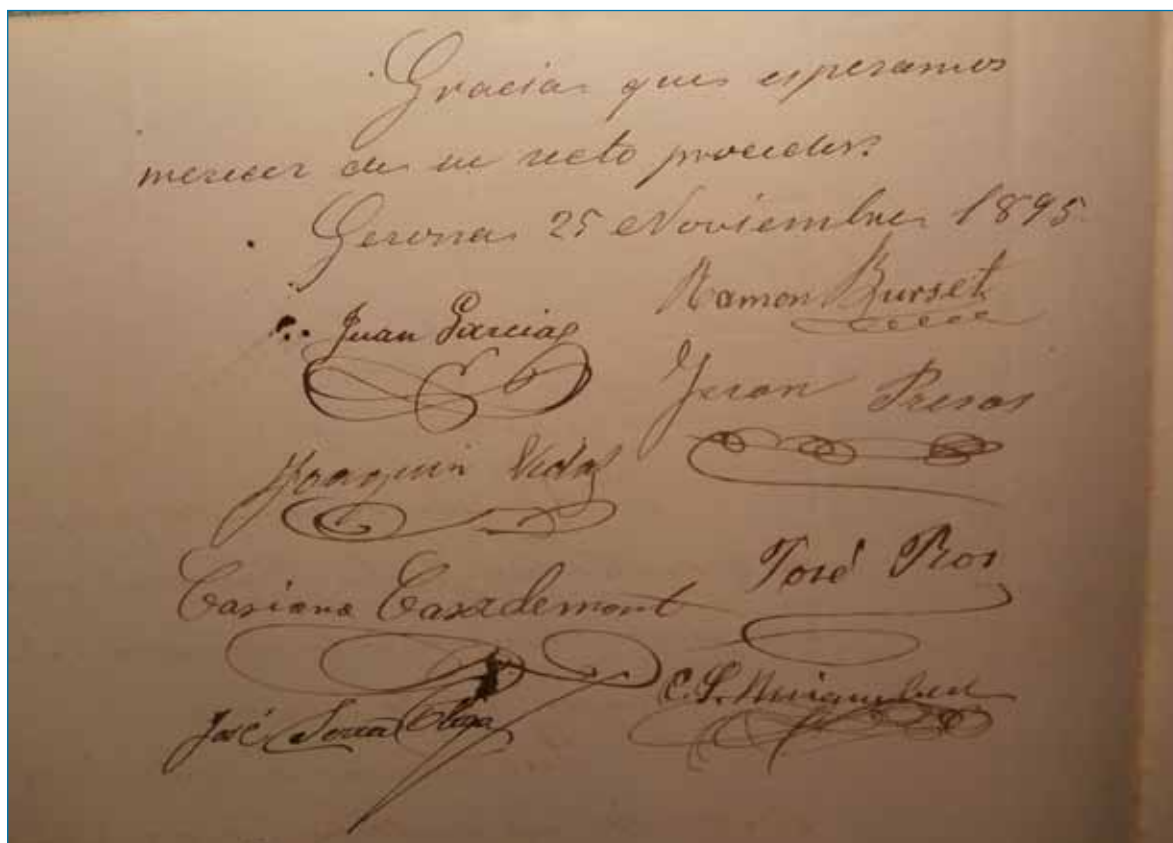 Gracia que esperamos
merecer de su recto proceder.
Gerona 25 Noviembre 1895
Ramon Burset
Juan Garcia
Jeron Presas
Joaquin Vidal
José Ros
Casiano Casademont
C. S.
José